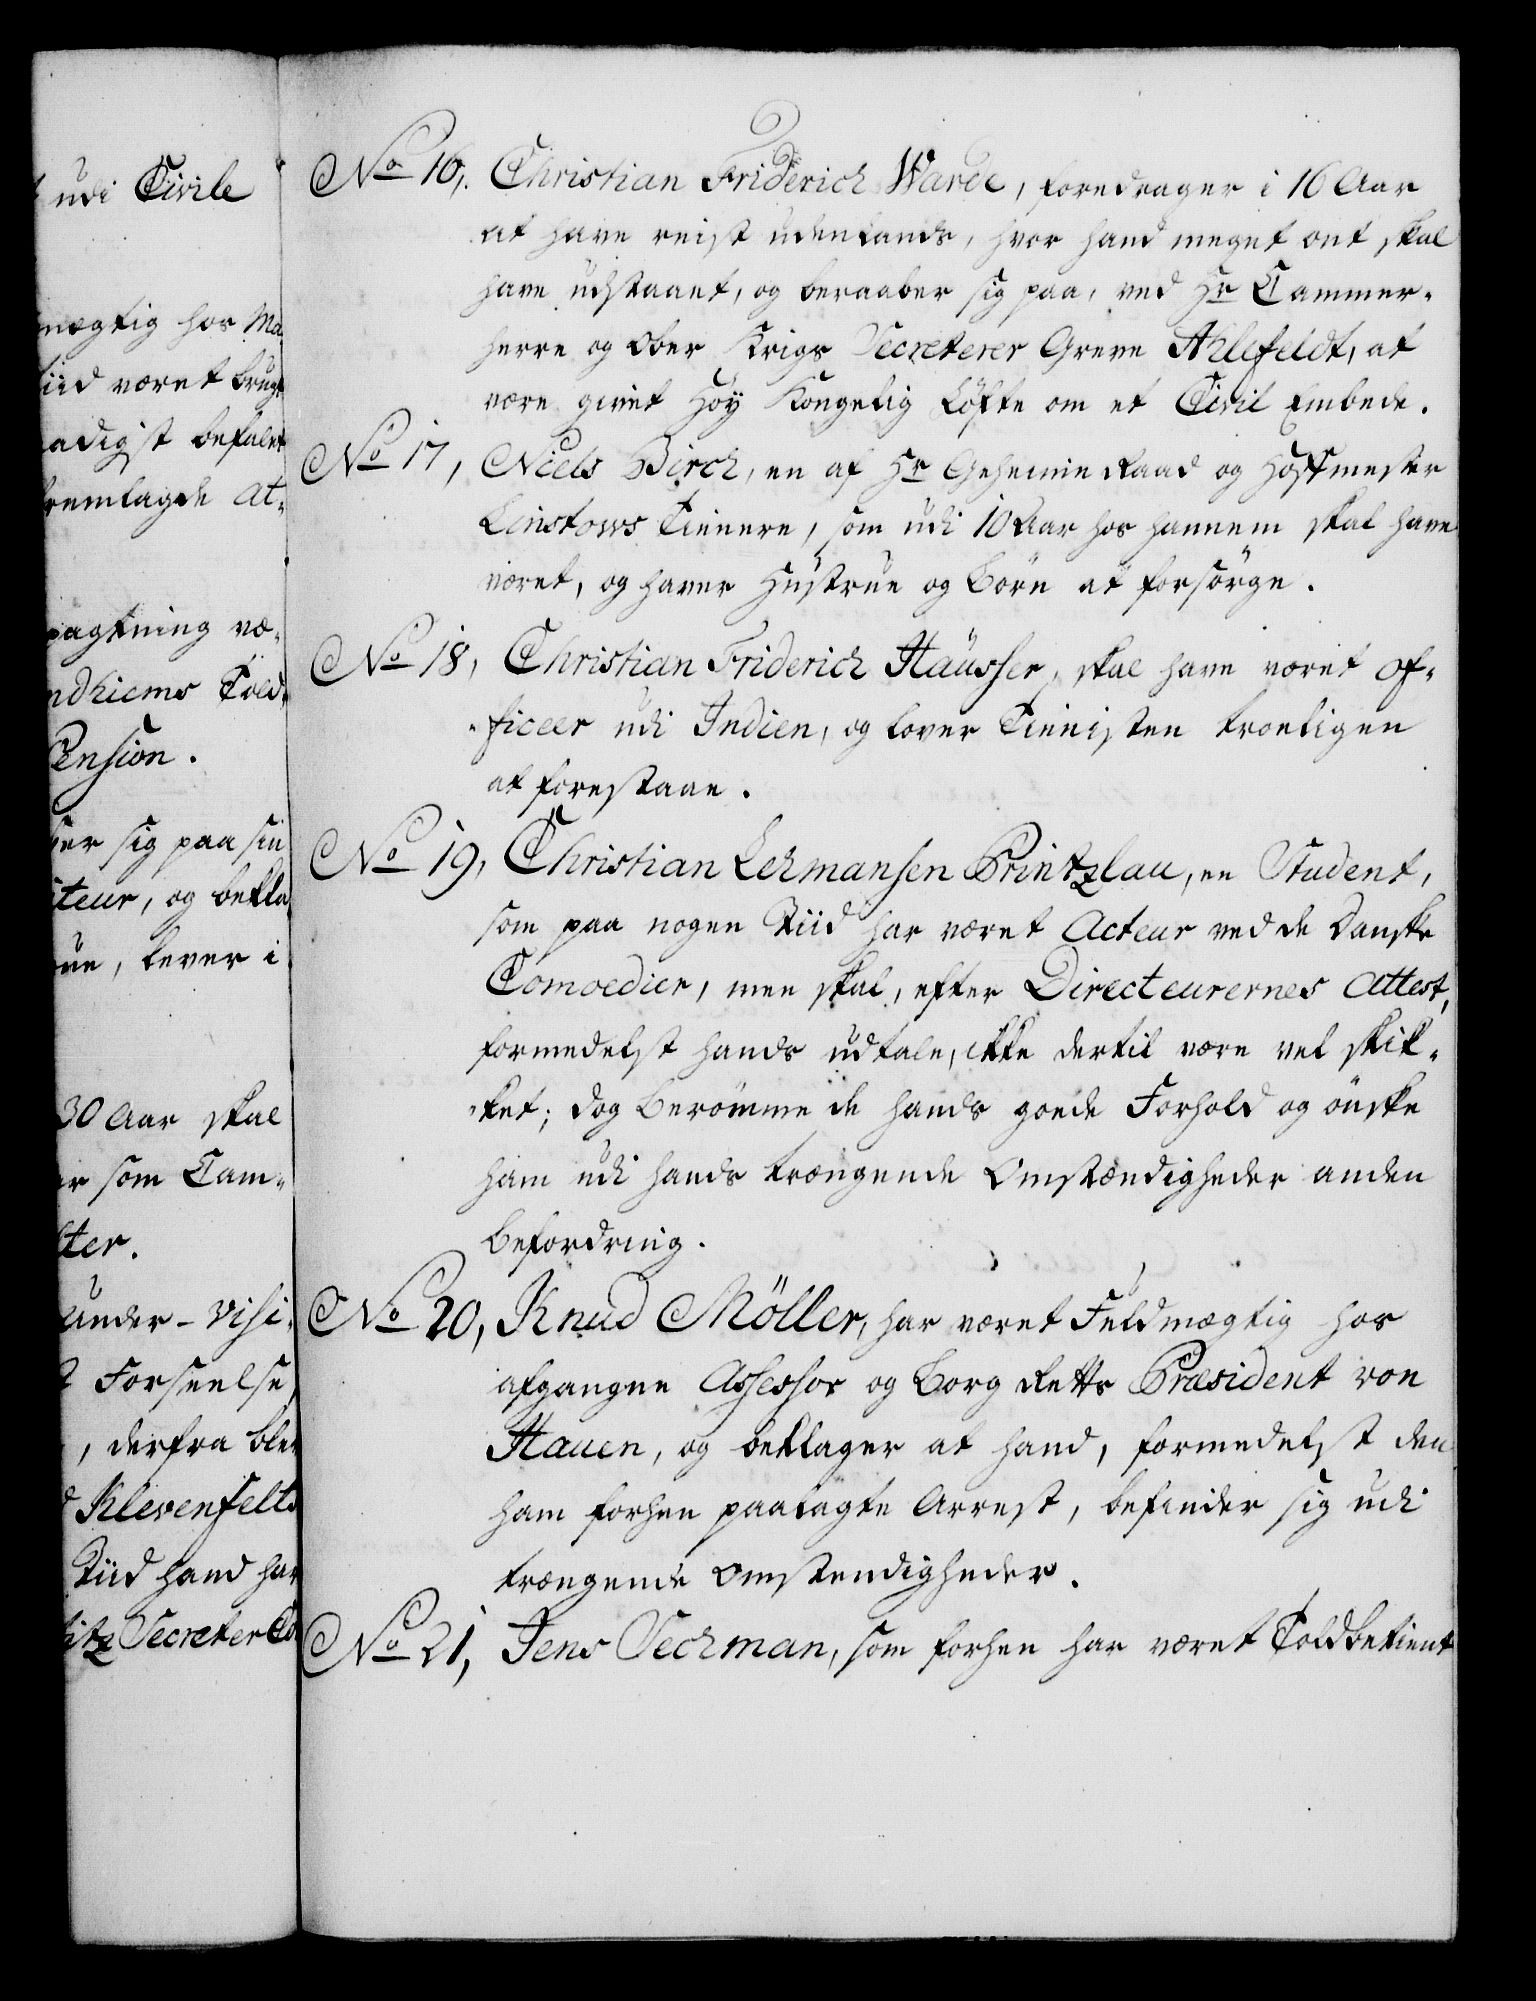 udi Civile
mægtig hos Ma-
tiid været brugt
naadigst befalet
fremlagde At-
pagtning væ-
ndhiems Told-
Pension.
ser sig paa sin
iteur, og bekla
rue, lever i
30 Aar skal
er som Cam-
lter.
Under-Visi-
Forseelse,
, derfra blev
Klevenfelts
Tiid hand har
litz Secreter Co
No 16, Christian Friderich Warde, foredrager i 16 Aar
at have reist udenlands, hvor hand meget ont skal
have udstaaet, og beraaber sig paa, ved Hr Cammer-
herre og Ober Krigs Secreterer Greve Ahlefeldt, at
være givet Höÿ Kongelig Löfte om et Civil Embede.
No 17, Niels Birch, en af Hr Geheime Raad og Hoffmester
Linstows Tienere, som udi 10 Aar hos hannem skal have
været, og haver Hustrue og Börn at forsörge.
No 18, Christian Friderich Häusser, skal have været Of-
ficeer udi Indien, og lover Tienisten troeligen
at forestaae.
No 19, Christian Lehmansen Printzlau, en Student,
som paa nogen Tiid har været Acteur ved de Danske
Comoedier, men skal, efter Directeurernes Attest,
formedelst hands udtale, ikke dertil være vel skik-
ket; dog Berömme de hands goede Forhold og önske
ham udi hands trængende Omstændigheder anden
Befordring.
No 20, Knud Möller, har været Fuldmægtig hos
afgangne Assessor og Borg Retts Præsident von
Hauen, og beklager at hand, formedelst den
ham forhen paalagte Arrest, befinder sig udi
trængende Omstendigheder.
No 21, Jens Sechman, som forhen har været Toldbetient